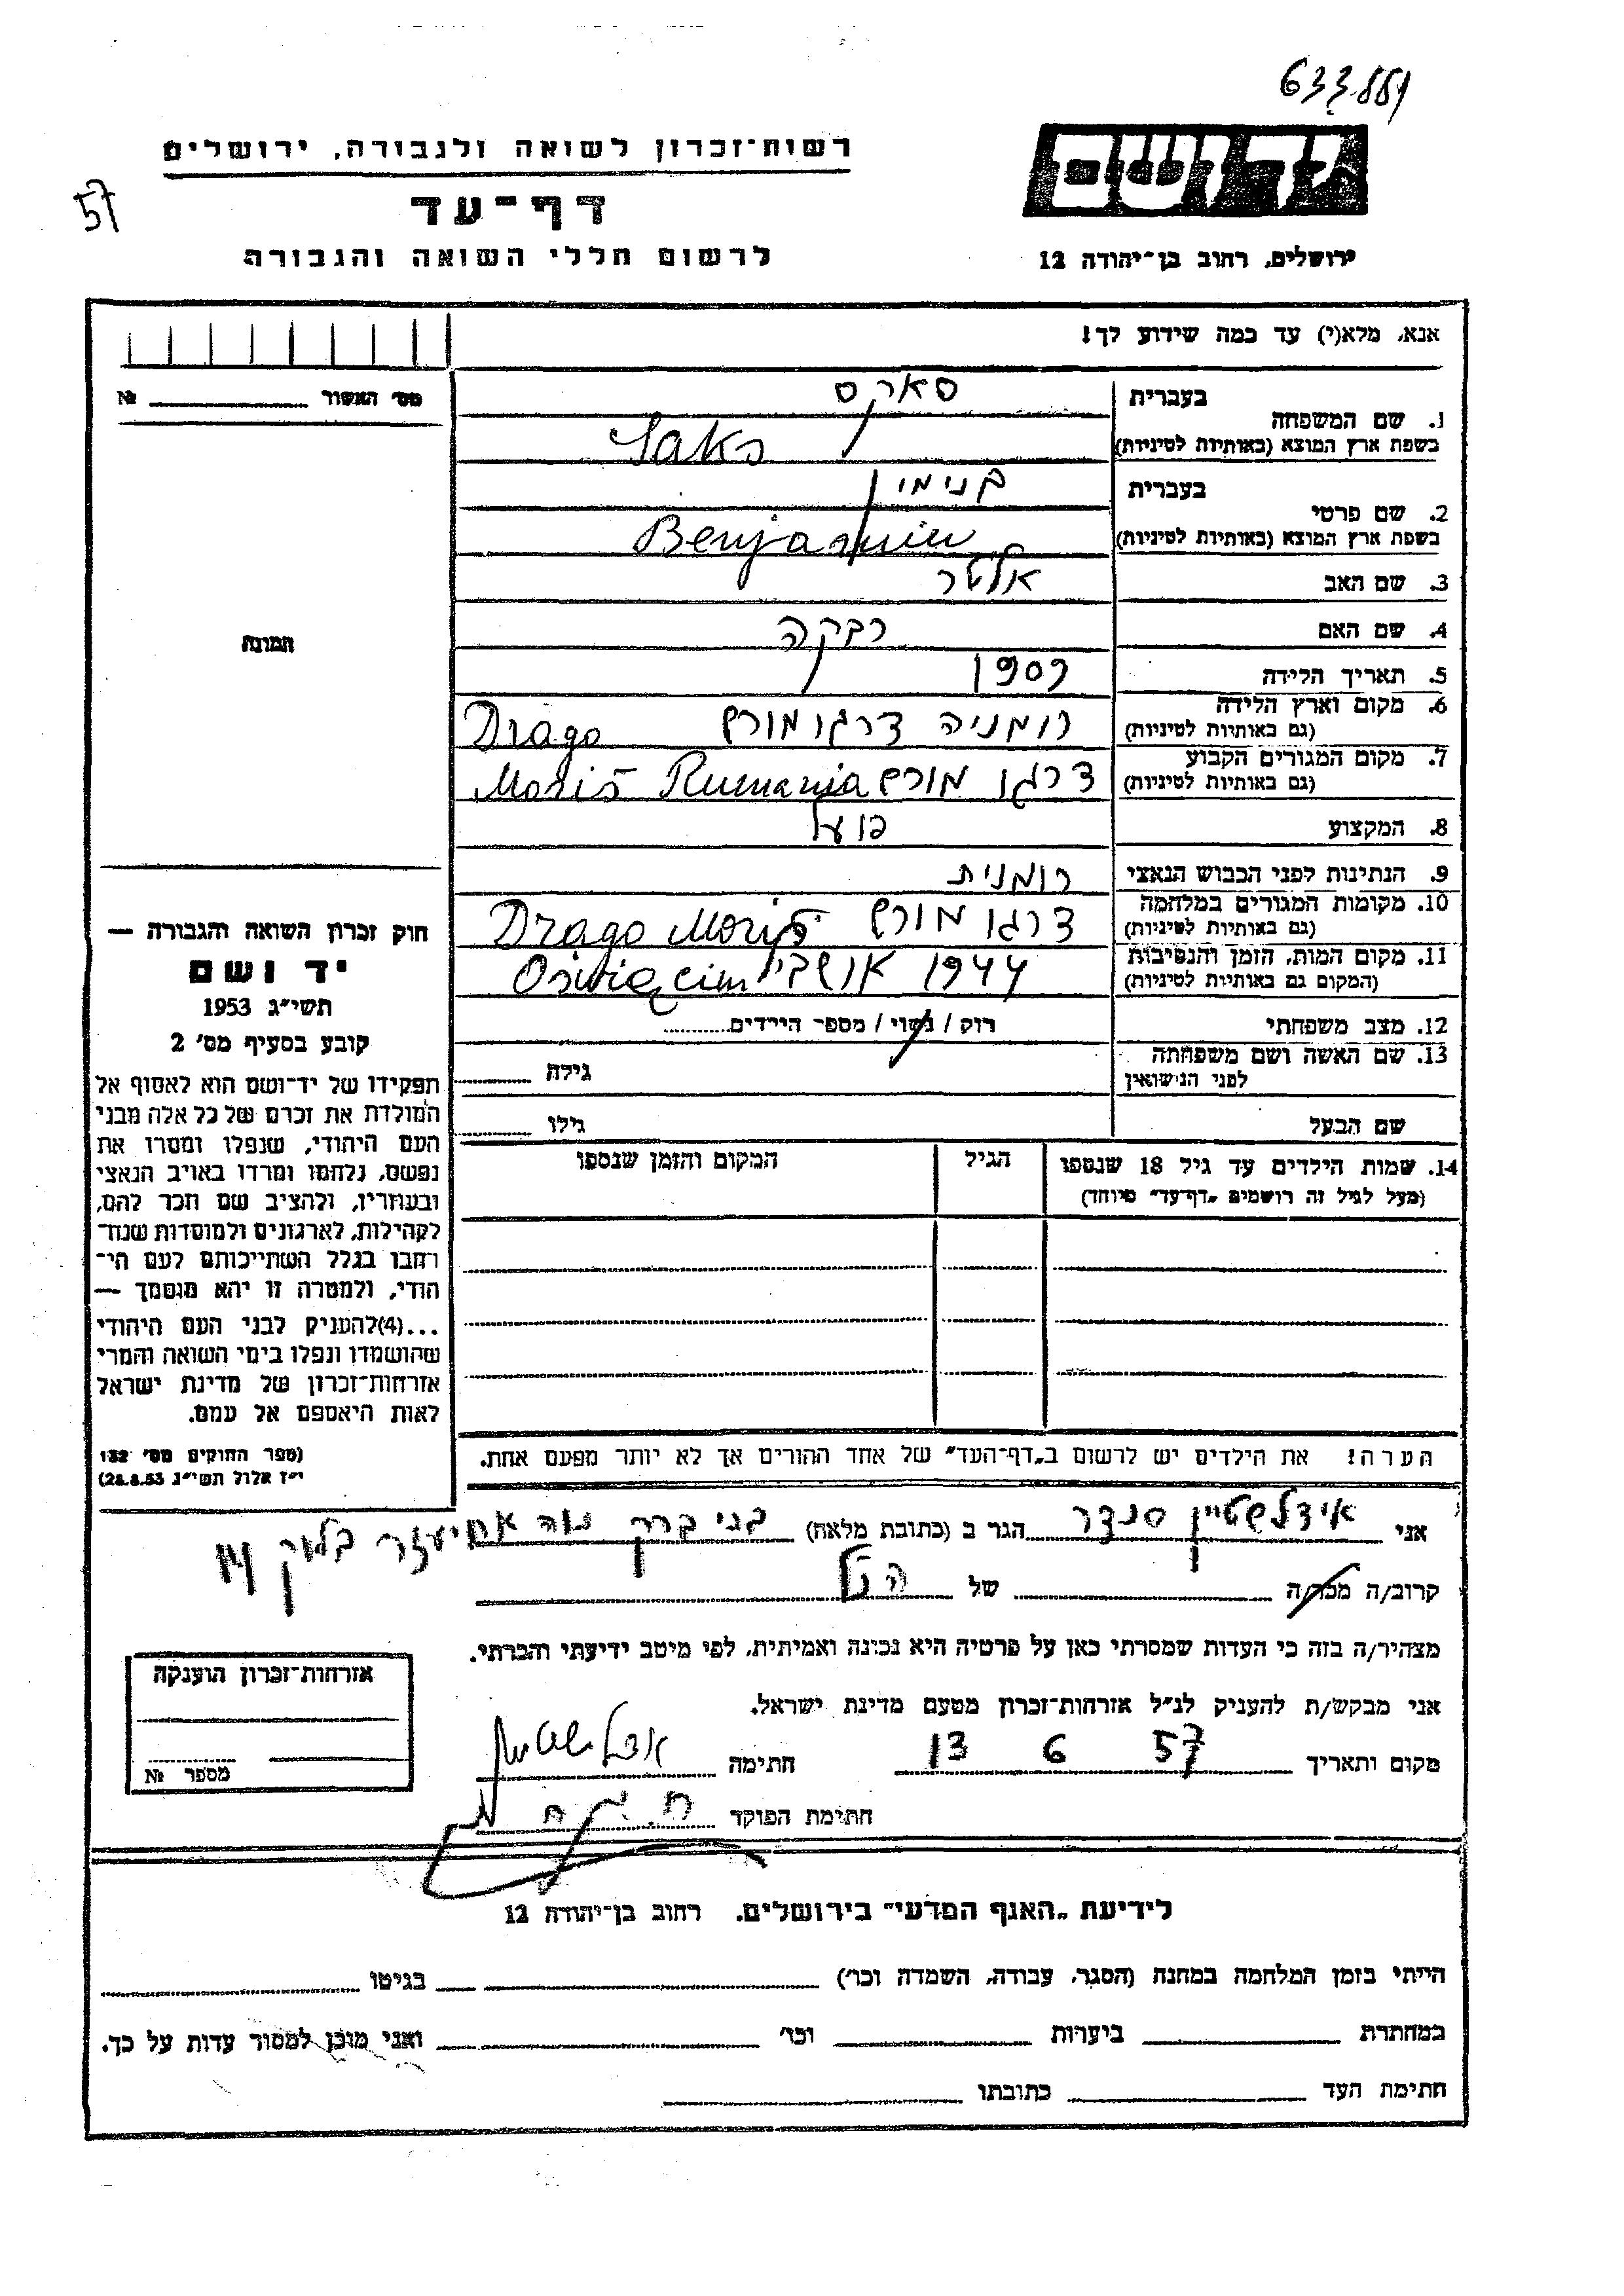 633.889
רשות־זכרון לשואה ולגבורה, ירושלים
57
דף־עד
לרשום חללי השואה והגבורה
יד ושם
ירושלים, רחוב בן־יהודה 12
אנא, מלא(י) עד כמה שידוע לך!
מס' האשור № ________
1. שם המשפחה
בעברית סאקס
בשפת ארץ המוצא (באותיות לטיניות) Saks
2. שם פרטי
בעברית בנימין
בשפת ארץ המוצא (באותיות לטיניות) Benjamin
3. שם האב אלטר
תמונה
4. שם האם רבקה
5. תאריך הלידה 1909
6. מקום וארץ הלידה רומניה דרגומורש Drago
(גם באותיות לטיניות)
7. מקום המגורים הקבוע דרגו מורש Rumania Moriš
(גם באותיות לטיניות)
8. המקצוע פועל
9. הנתינות לפני הכבוש הנאצי רומנית
10. מקומות המגורים במלחמה דרגו מורש Drago Moriš
(גם באותיות לטיניות)
11. מקום המות, הזמן והנסיבות 1944 Oświęcim
(המקום גם באותיות לטיניות)
12. מצב משפחתי רוק / נשוי / מספר הילדים
13. שם האשה ושם משפחתה
לפני הנישואין גילה
שם הבעל גילו
14. שמות הילדים עד גיל 18 שנספו הגיל המקום והזמן שנספו
(מעל לגיל זה רושמים „דף־עד" מיוחד)
חוק זכרון השואה והגבורה —
יד ושם
תשי"ג 1953
קובע בסעיף מס' 2
תפקידו של יד־ושם הוא לאסוף אל
המולדת את זכרם של כל אלה מבני
העם היהודי, שנפלו ומסרו את
נפשם, נלחמו ומרדו באויב הנאצי
ובעוזריו, ולהציב שם וזכר להם,
לקהילות, לארגונים ולמוסדות שנח־
רבו בגלל השתייכותם לעם הי־
הודי, ולמטרה זו יהא מוסמך —
...(4)להעניק לבני העם היהודי
שהושמדו ונפלו בימי השואה והמרי
אזרחות־זכרון של מדינת ישראל
לאות היאספם אל עמם.
(ספר החוקים מס' 132
י"ז אלול תשי"ג 28.8.53)
הערה! את הילדים יש לרשום ב„דף־העד" של אחד ההורים אך לא יותר מפעם אחת.
אני אידלשטיין סנדר הגר ב (כתובת מלאה) בני ברק נוה אחיעזר בלוק
קרוב/ה מכר/ה של הנ"ל
מצהיר/ה בזה כי העדות שמסרתי כאן על פרטיה היא נכונה ואמיתית, לפי מיטב ידיעתי והכרתי.
אני מבקש/ת להעניק לנ"ל אזרחות־זכרון מטעם מדינת ישראל.
מקום ותאריך 13 6 57 חתימה
חתימת הפוקד
אזרחות־זכרון הוענקה
מספר №
לידיעת „האגף המדעי" בירושלים. רחוב בן־יהודה 12
הייתי בזמן המלחמה במחנה (הסגר, עבודה, השמדה וכו') בגיטו
במחתרת ביערות וכו' ואני מוכן למסור עדות על כך.
חתימת העד כתובתו